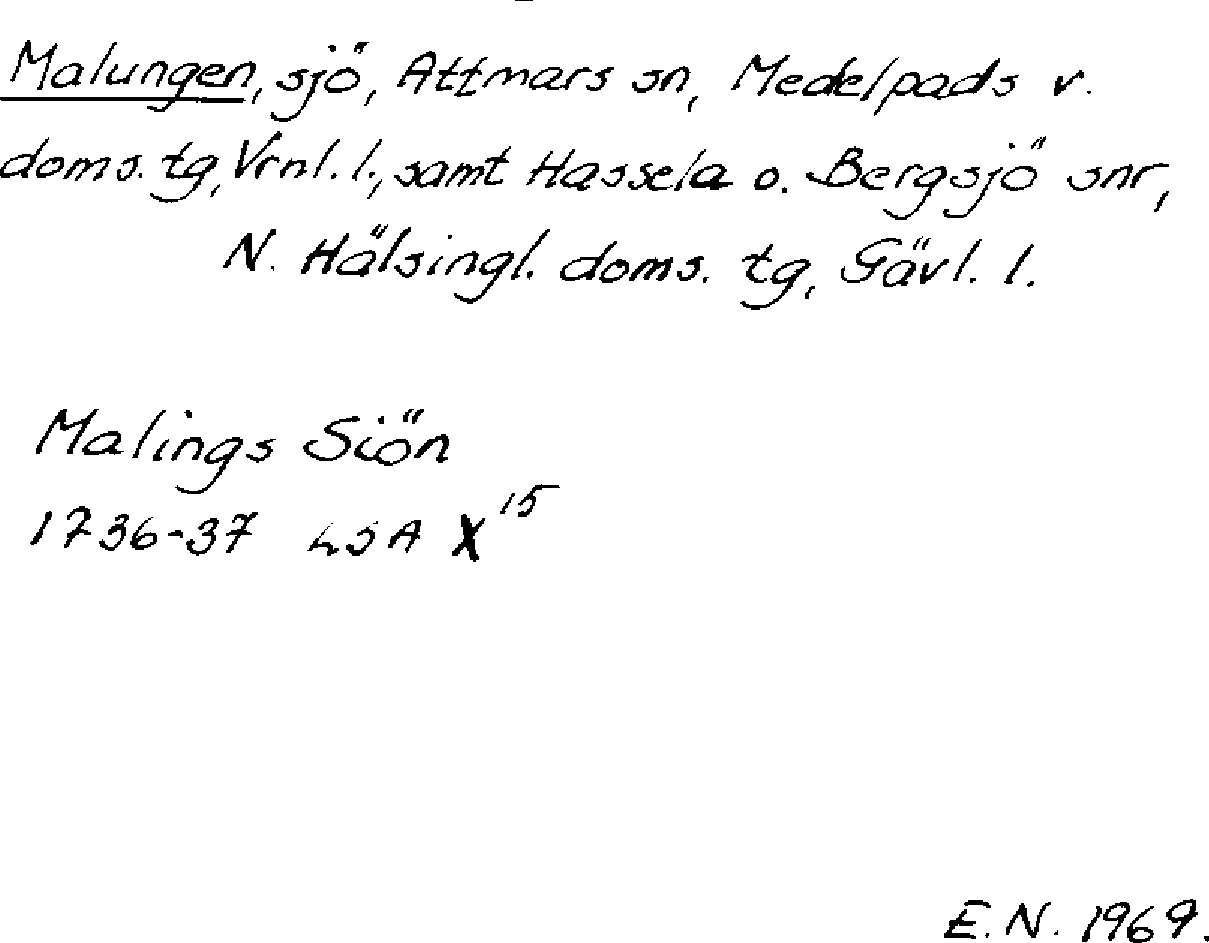 Malungen, sjö, Attmars sn, Medelpads v.
doms. tg, Vrnl. l., samt Hassela o. Bergsjö snr,
N. Hälsingl. doms. tg, Gävl. l.
Malings Siön
1736-37 LSA X¹⁵
E. N. 1969.